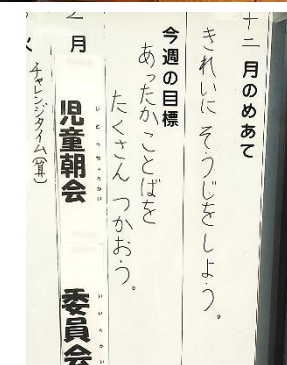 十二月のめあて
きれいに そうじをしよう。
今週の目標
あったかことばを
たくさん つかおう。
月
児童朝会
委員会
チャレンジタイム(算)